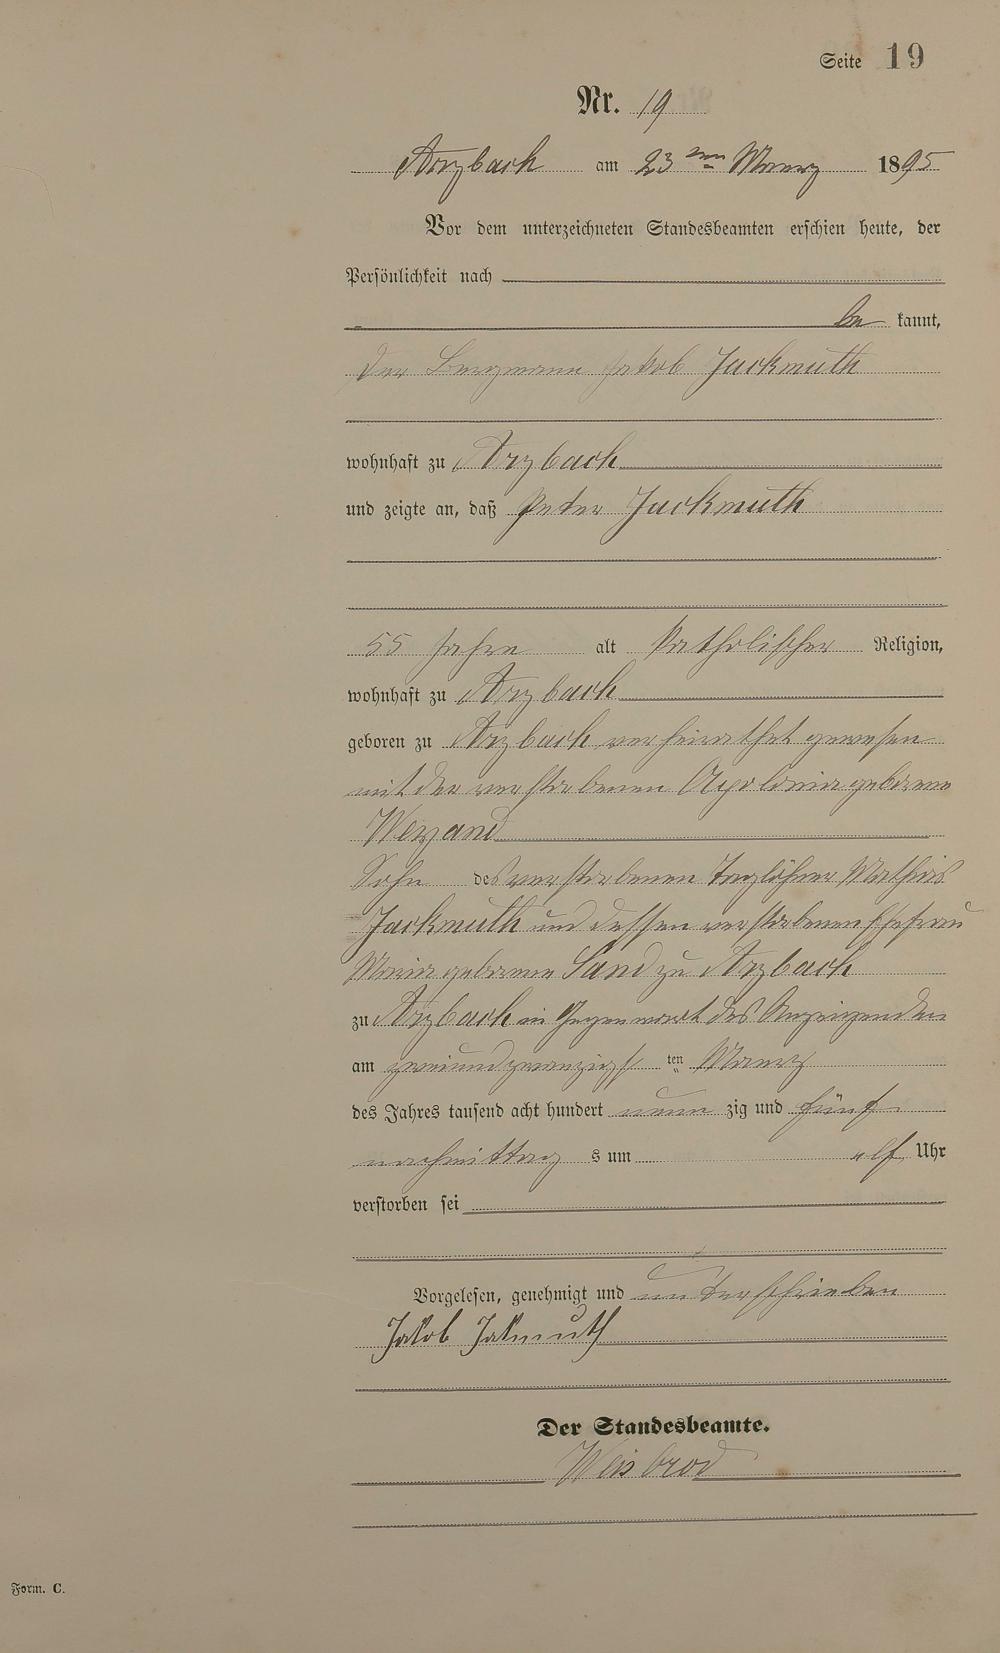 Seite 19
Nr. 19
Arzbach am 23ten Maerz 1895
Vor dem unterzeichneten Standesbeamten erschien heute, der
Persönlichkeit nach
be kannt,
der Bergmann Jakob Jackmuth
wohnhaft zu Arzbach
und zeigte an, daß Peter Jackmuth
55 Jahre alt katholischer Religion,
wohnhaft zu Arzbach
geboren zu Arzbach verheirathet gewesen
mit der verstorbenen Apolonia geborene
Weyand
Sohn des verstorbenen Taglöhner Mathias
Jackmuth und dessen verstorbenen Ehefrau
Maria geborene Sand zu Arzbach
zu Arzbach in Gegenwart des Anzeigenden
am zweiundzwanzigsten Maerz
des Jahres tausend acht hundert neun zig und fünf
nachmittag s um elf Uhr
verstorben sei
Vorgelesen, genehmigt und unterschrieben
Jakob Jakmuth
Der Standesbeamte.
Weisbrod
Form. C.